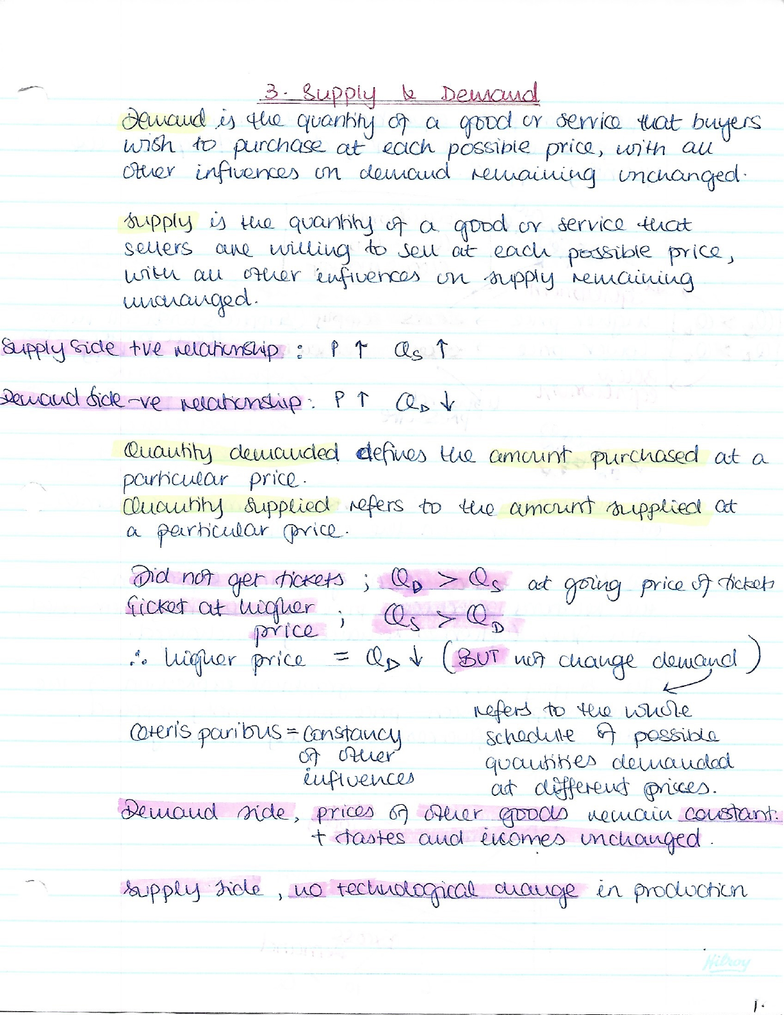 3. Supply & Demand
Demand is the quantity of a good or service that buyers
wish to purchase at each possible price, with all
other influences on demand remaining unchanged.
Supply is the quantity of a good or service that
sellers are willing to sell at each possible price,
with all other influences on supply remaining
unchanged.
Supply side +ve relationship : P ↑ Qs ↑
Demand side -ve relationship : P ↑ QD ↓
Quantity demanded defines the amount purchased at a
particular price.
Quantity supplied refers to the amount supplied at
a particular price.
Did not get tickets ; QD > QS at going price of tickets
Ticket at higher
price ; QS > QD
∴ higher price = QD ↓ (BUT not change demand)
refers to the whole
schedule of possible
quantities demanded
at different prices.
Ceteris paribus = constancy
of other
influences
Demand side, prices of other goods remain constant.
+ tastes and incomes unchanged.
Supply side, no technological change in production
Hilroy
1.